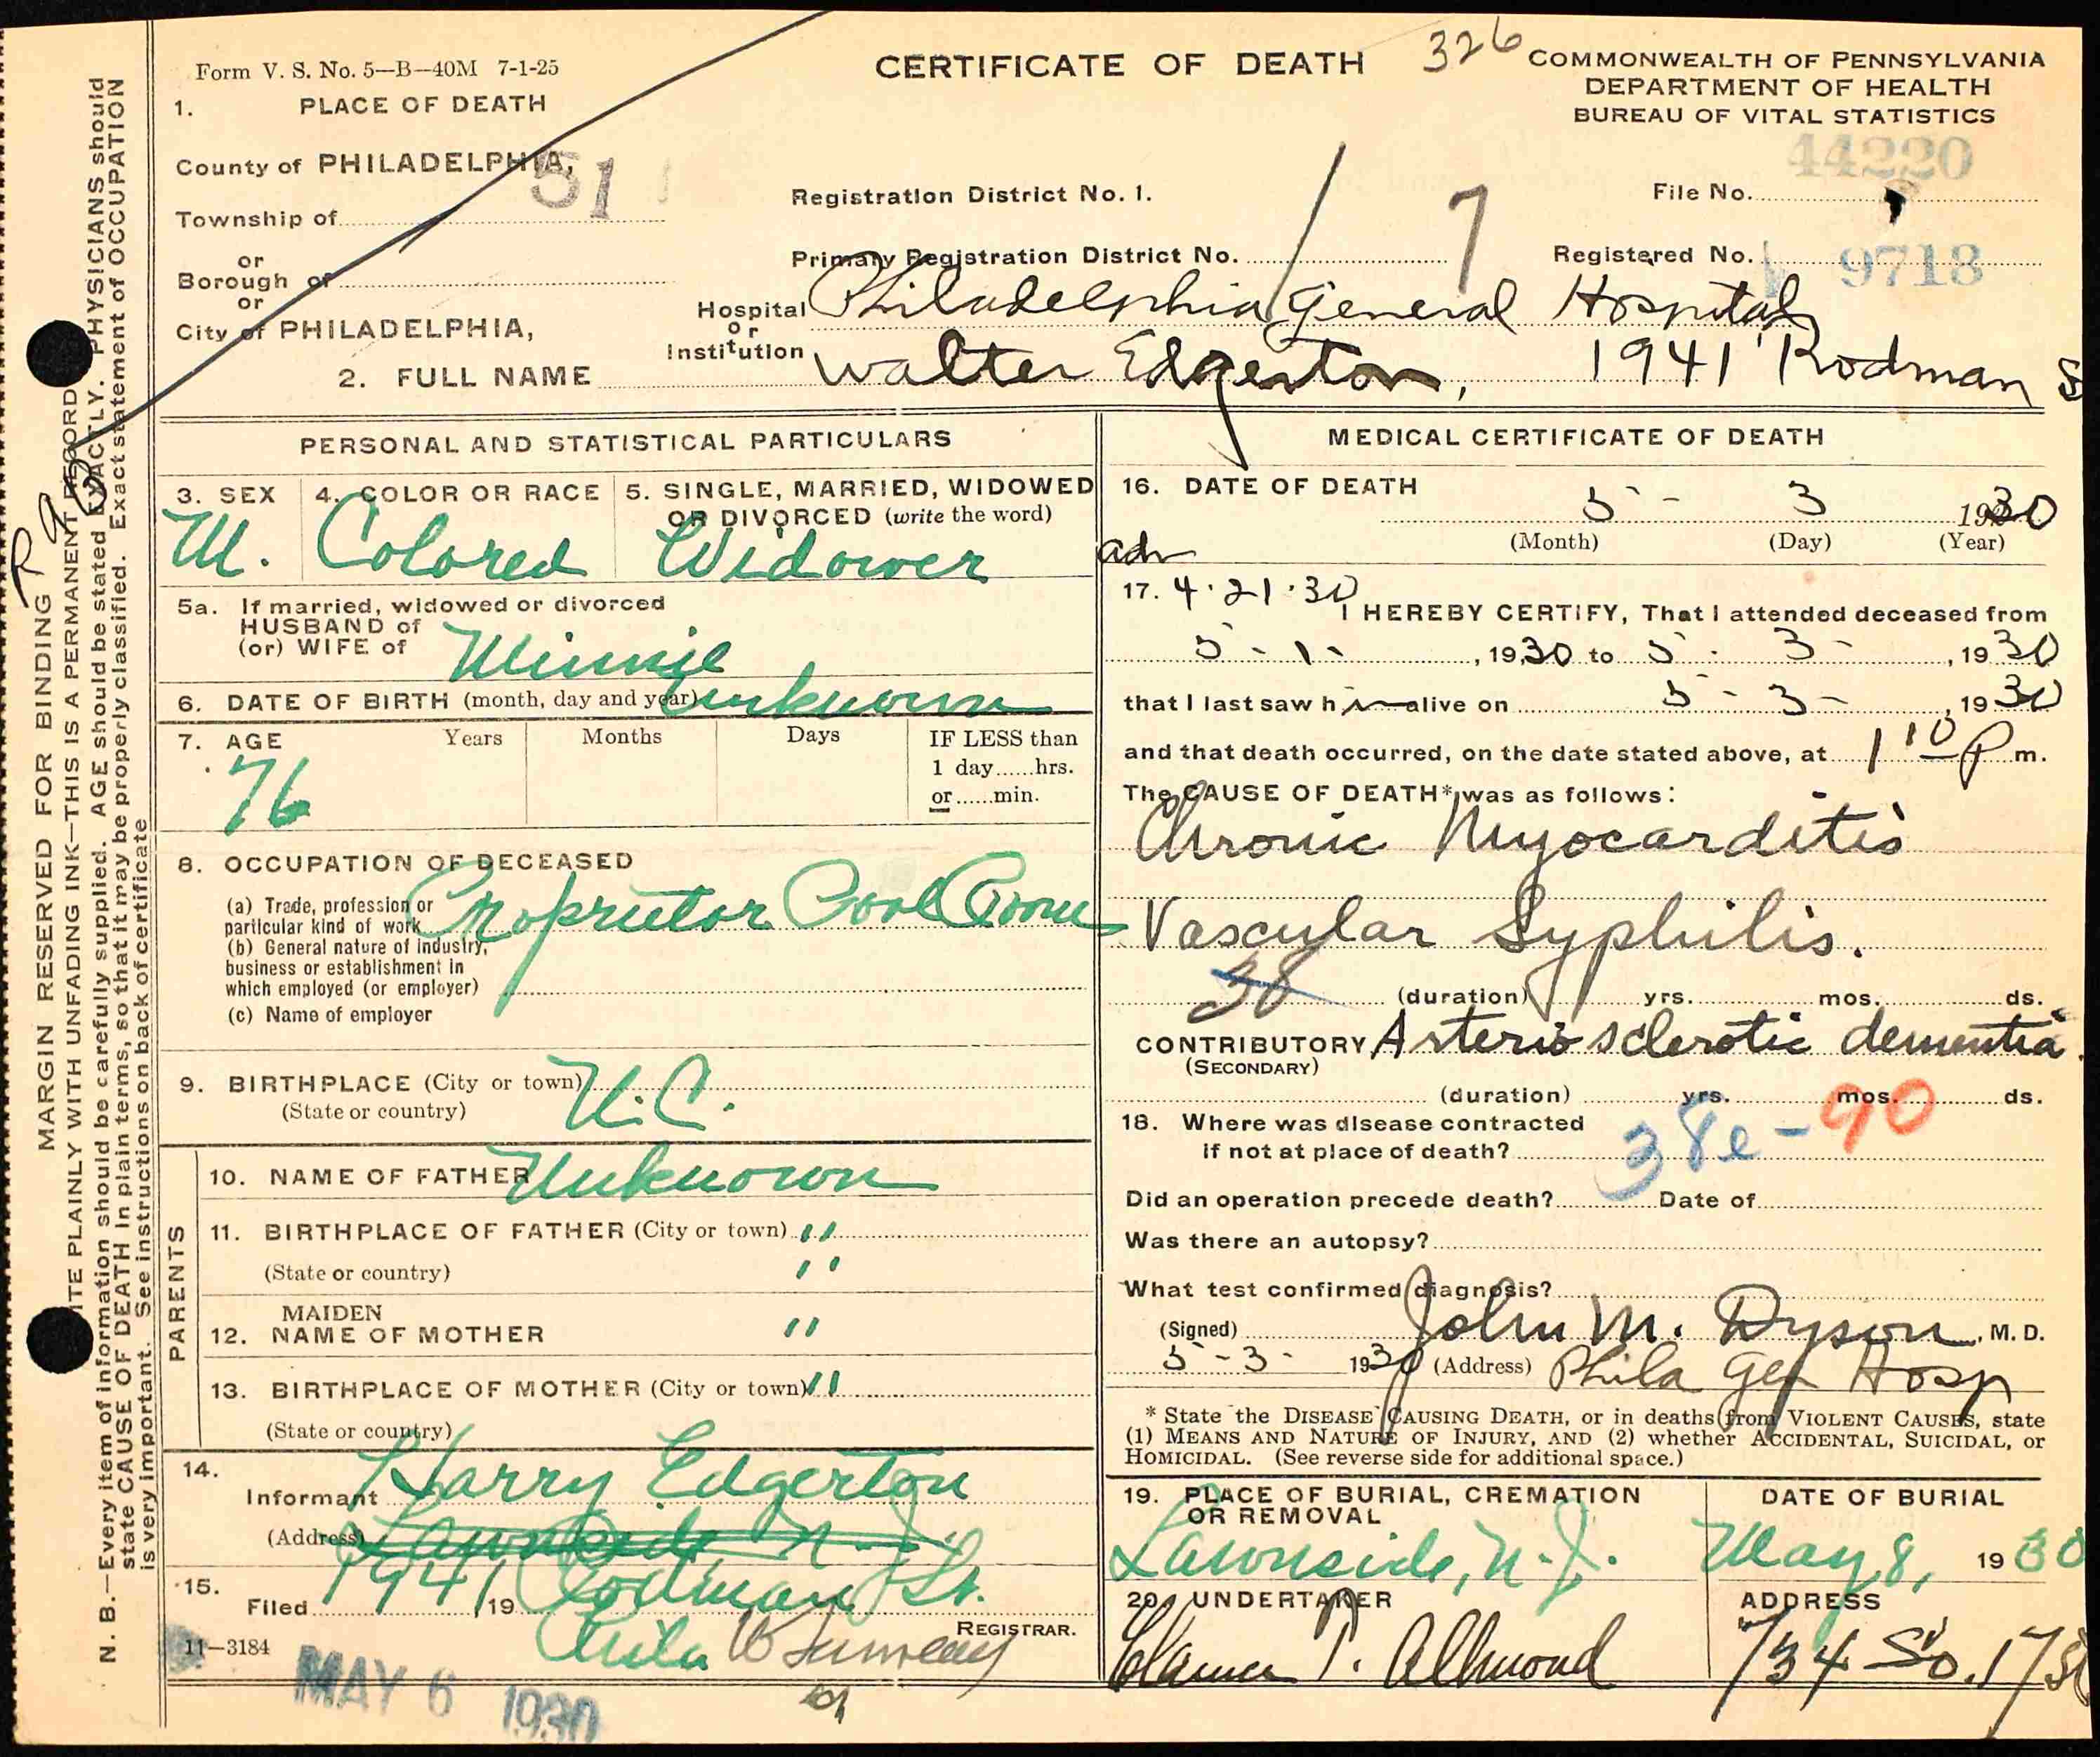 Form V. S. No. 5—B—40M 7-1-25
CERTIFICATE OF DEATH
326
COMMONWEALTH OF PENNSYLVANIA
DEPARTMENT OF HEALTH
BUREAU OF VITAL STATISTICS
1. PLACE OF DEATH
County of PHILADELPHIA,
51
Township of
or
Borough of
or
City of PHILADELPHIA,
Registration District No. 1.
Primary Registration District No. 7
44220
File No.
Registered No. 9713
Hospital or Institution Philadelphia General Hospital
2. FULL NAME Walter Edgerton, 1941 Rodman S
PERSONAL AND STATISTICAL PARTICULARS
3. SEX M.
4. COLOR OR RACE Colored
5. SINGLE, MARRIED, WIDOWED OR DIVORCED (write the word) Widower
5a. If married, widowed or divorced
HUSBAND of
(or) WIFE of Minnie
6. DATE OF BIRTH (month, day and year) unknown
7. AGE Years Months Days
76
IF LESS than
1 day......hrs.
or......min.
8. OCCUPATION OF DECEASED
(a) Trade, profession or
particular kind of work Proprietor Pool Room
(b) General nature of industry,
business or establishment in
which employed (or employer)
(c) Name of employer
9. BIRTHPLACE (City or town) N.C.
(State or country)
PARENTS
10. NAME OF FATHER Unknown
11. BIRTHPLACE OF FATHER (City or town) "
(State or country) "
12. MAIDEN NAME OF MOTHER "
13. BIRTHPLACE OF MOTHER (City or town) "
(State or country)
14.
Informant Harry Edgerton
(Address) Lawnside N.J.
1941 Rodman St.
Phila
15.
Filed , 19
REGISTRAR.
11—3184
MAY 6 1930
MEDICAL CERTIFICATE OF DEATH
16. DATE OF DEATH
5 - 3 1930
(Month) (Day) (Year)
adm
17. 4.21.30
I HEREBY CERTIFY, That I attended deceased from
5 - 1 - , 1930 to 5 - 3 - , 1930
that I last saw him alive on 5 - 3 - , 1930
and that death occurred, on the date stated above, at 1 10 P m.
The CAUSE OF DEATH* was as follows:
Chronic Myocarditis
Vascular Syphilis.
38
(duration) yrs. mos. ds.
CONTRIBUTORY Arteriosclerotic dementia.
(SECONDARY)
(duration) yrs. mos. ds.
18. Where was disease contracted
if not at place of death?
38e - 90
Did an operation precede death? Date of
Was there an autopsy?
What test confirmed diagnosis?
(Signed) John M. Dyson, M. D.
5 - 3 - 1930 (Address) Phila Gen Hosp
* State the DISEASE CAUSING DEATH, or in deaths from VIOLENT CAUSES, state
(1) MEANS AND NATURE OF INJURY, AND (2) whether ACCIDENTAL, SUICIDAL, or
HOMICIDAL. (See reverse side for additional space.)
19. PLACE OF BURIAL, CREMATION OR REMOVAL
Lawnside, N.J.
DATE OF BURIAL
May 8, 1930
20. UNDERTAKER
ADDRESS
734 So. 17 St
MARGIN RESERVED FOR BINDING
ITE PLAINLY WITH UNFADING INK—THIS IS A PERMANENT RECORD
N. B.—Every item of information should be carefully supplied. AGE should be stated EXACTLY. PHYSICIANS should
state CAUSE OF DEATH in plain terms, so that it may be properly classified. Exact statement of OCCUPATION
is very important. See instructions on back of certificate